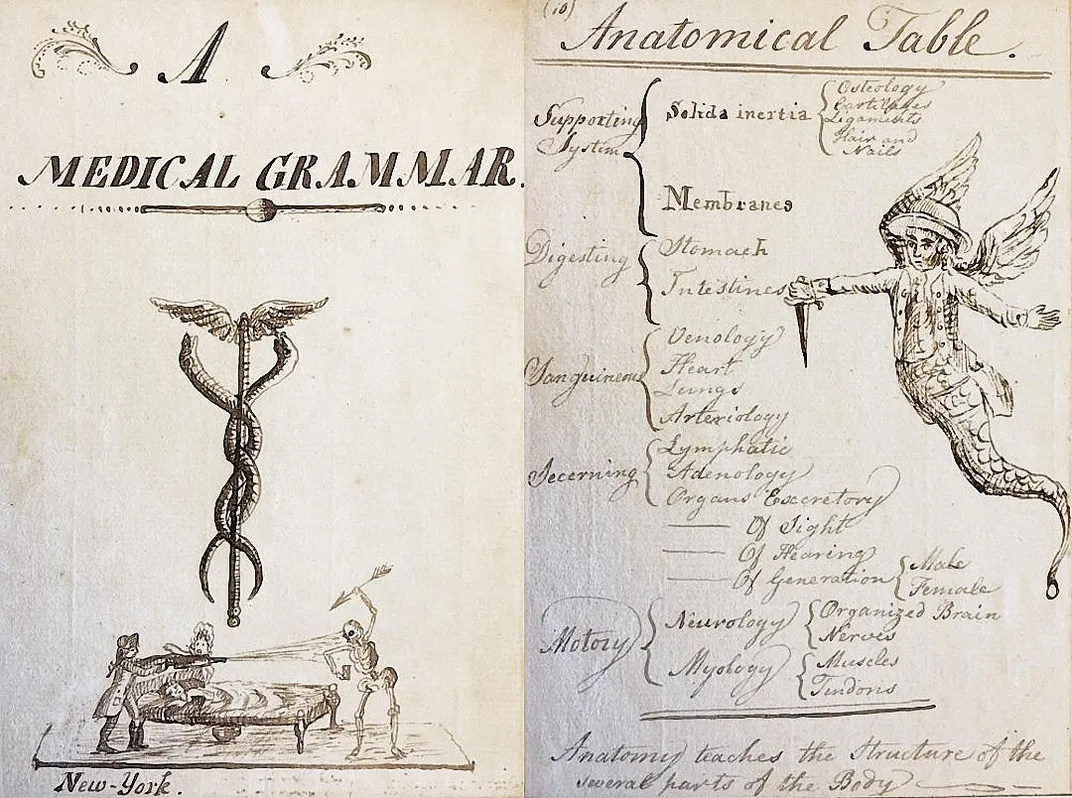 A
MEDICAL GRAMMAR.
New-York.
(10)
Anatomical Table.
Supporting
System
Solida inertia
Osteology
Cartilages
Ligaments
Hair and
Nails
Membranes
Digesting
Stomach
Intestines
Sanguineous
Venology
Heart
Lungs
Arteriology
Secerning
Lymphatic
Adenology
Organs Excretory
Of Sight
Of Hearing
Of Generation
Male
Female
Motory
Neurology
Organized Brain
Nerves
Myology
Muscles
Tindons
Anatomy teaches the Structure of the
several parts of the Body